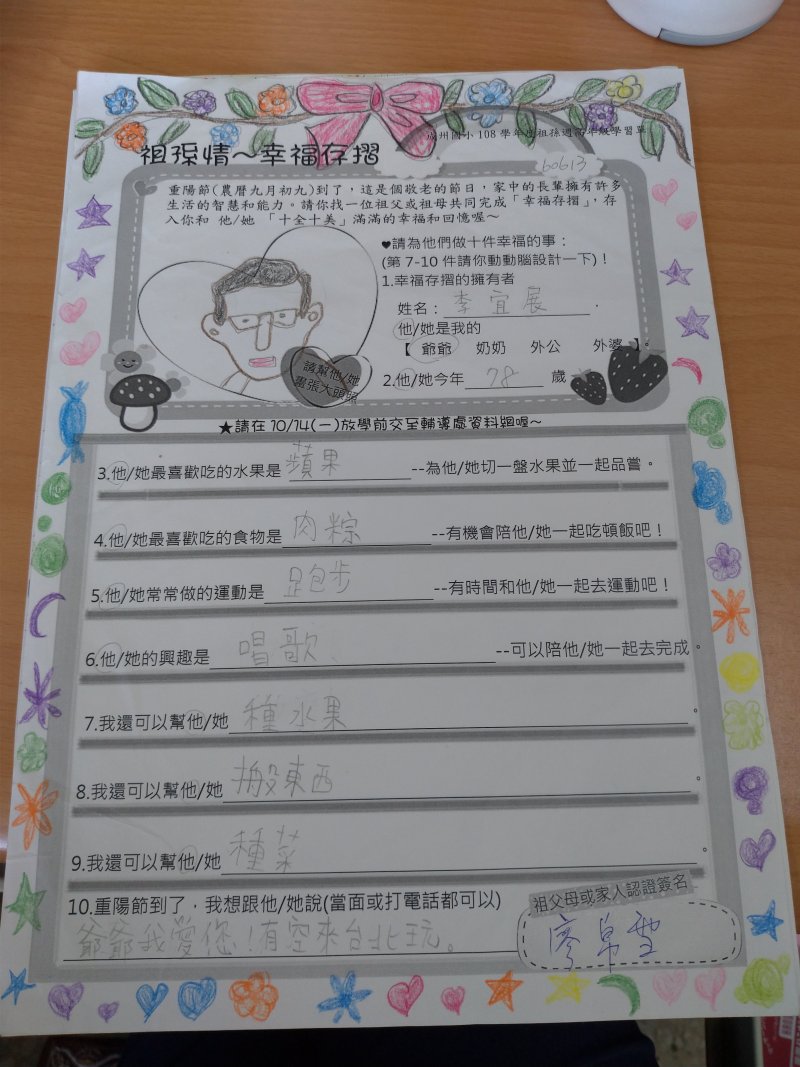 成州國小 108 學年度祖孫週高年級學習單
祖孫情～幸福存摺
60613
重陽節(農曆九月初九)到了，這是個敬老的節日，家中的長輩擁有許多
生活的智慧和能力。請你找一位祖父或祖母共同完成「幸福存摺」，存
入你和 他/她 「十全十美」滿滿的幸福和回憶喔～
♥請為他們做十件幸福的事：
(第 7-10 件請你動動腦設計一下)！
1.幸福存摺的擁有者
姓名：李宜展
他/她是我的
【 爺爺 奶奶 外公 外婆 】。
2.他/她今年 78 歲
請幫他/她
畫張大頭照
★請在 10/14(一)放學前交至輔導處資料組喔～
3.他/她最喜歡吃的水果是 蘋果 --為他/她切一盤水果並一起品嘗。
4.他/她最喜歡吃的食物是 肉粽 --有機會陪他/她一起吃頓飯吧！
5.他/她常常做的運動是 跑步 --有時間和他/她一起去運動吧！
6.他/她的興趣是 唱歌 --可以陪他/她一起去完成。
7.我還可以幫他/她 種水果 。
8.我還可以幫他/她 搬東西 。
9.我還可以幫他/她 種菜 。
10.重陽節到了，我想跟他/她說(當面或打電話都可以)
爺爺我愛您！有空來台北玩。
祖父母或家人認證簽名
廖